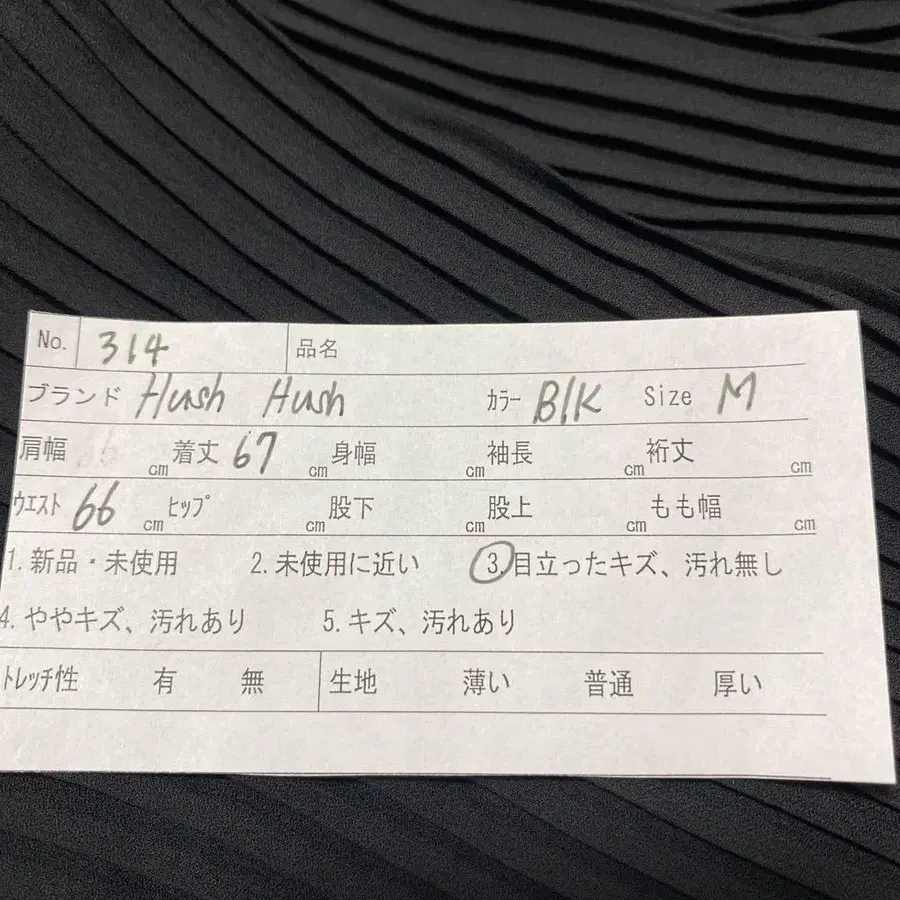 No. 314 品名
ブランド Hush Hush カラー Blk Size M
肩幅 cm 着丈 67 cm 身幅 cm 袖長 cm 裄丈 cm
ウエスト 66 cm ヒップ cm 股下 cm 股上 cm もも幅 cm
1.新品・未使用 2.未使用に近い 3.目立ったキズ、汚れ無し
4.ややキズ、汚れあり 5.キズ、汚れあり
トレッチ性 有 無 生地 薄い 普通 厚い